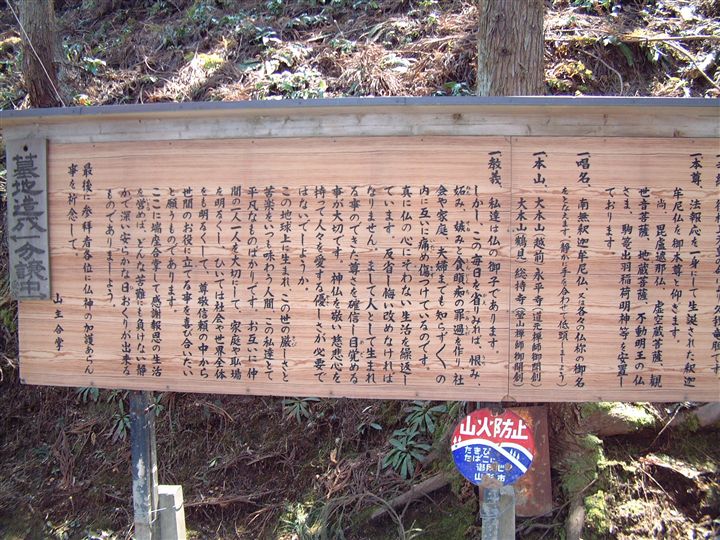 一本尊、法報応を一身して生誕された釈迦
牟尼仏を御本尊と仰ぎます。
尚、毘盧遮那仏、虚空蔵菩薩、観
世音菩薩、地蔵菩薩、不動明王の仏
さま、駒篭出羽稲荷明神等を安置し
ております。
一唱名、南無釈迦牟尼仏、又は各々の仏様の御名
をとなえます。(静かに手を合わせて低頭しましょう)
一本山、大本山越前、永平寺(道元禅師御開創)
大本山鶴見、総持寺(瑩山禅師御開創)
一教義、私達は仏の御子であります。
しかし、この毎日を省りみれば、恨み、
妬み、嫉みと貪瞋痴の罪過を作り、社
会や家庭、夫婦までも知らずくの
内に互いに痛め傷つけているのです。
真に仏の心にそわない生活を繰返し
ています。反省し悔い改めなければ
なりません。まして人として生まれ
る事のできた尊さを確信し目覚める
事が大切です。神仏を敬い慈悲心を
持って人々を愛する優しさが必要で
はないでしょうか。
この地球上に生まれ、この世の厳しさと
苦楽をいつも味わう人間、この私達とて
平凡なものばかりです。お互いに仲
間の一人一人を大切にして、家庭や職場
を明るくし、ひいては社会や世界全体
をも明るくして、尊敬信頼の中から
世間のお役に立てる事を喜び合いたい
と願うものであります。
ここに端座合掌して感謝報恩の生活
を営めば、どんな苦難にも負けない静
かで深い安らかな日おくりが出来る
ものでありましょう。
最後に参拝者各位に仏神の加護あらん
事を祈念して。
山主合掌
墓地造成分譲中
山火防止
たきび
たばこに
御用心
山形市